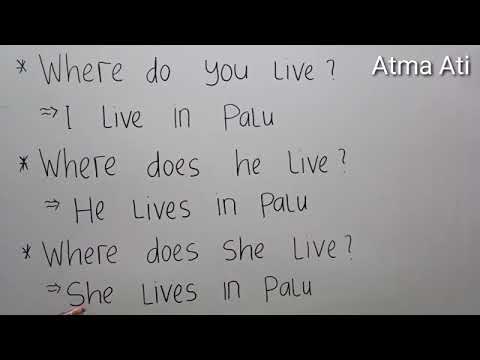 * Where do you live? Atma Ati
⇒ I live in Palu
* Where does he live?
⇒ He lives in Palu
* Where does she live?
⇒ She lives in Palu